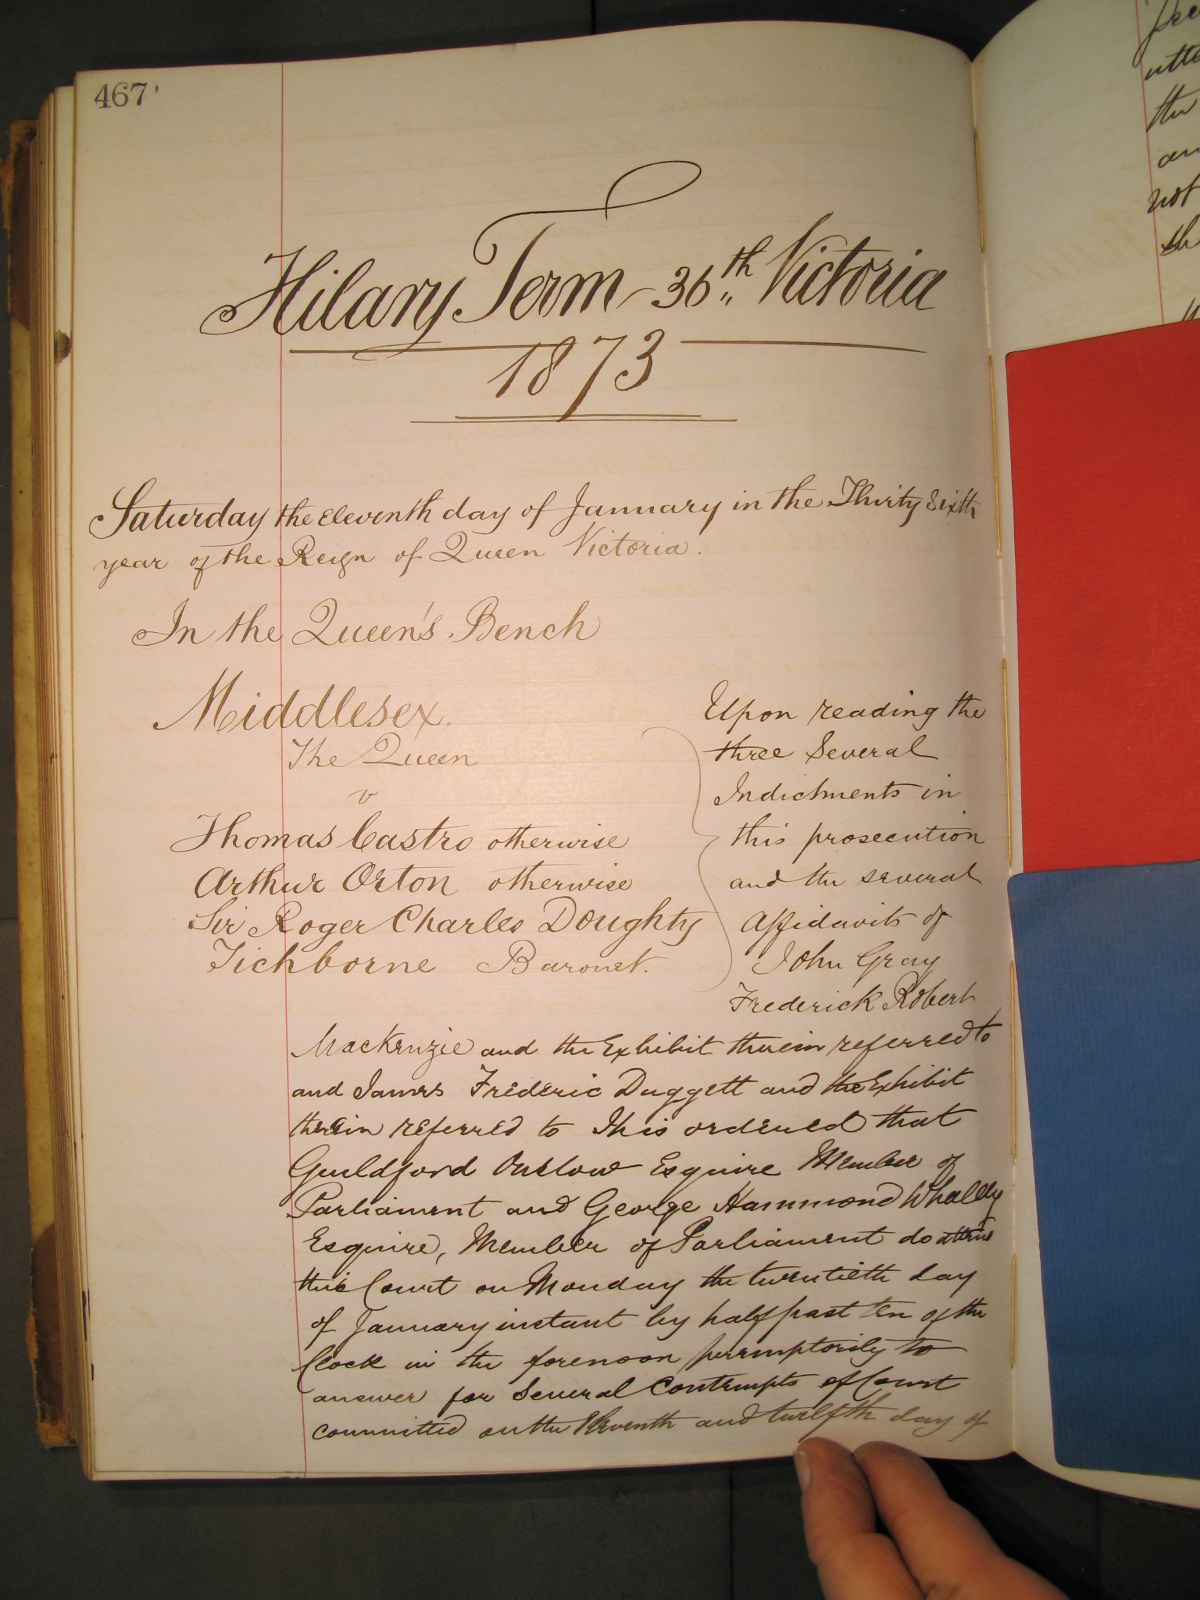 467
Hilary Term 36th Victoria
1873
Saturday the eleventh day of January in the Thirty Sixth
year of the Reign of Queen Victoria.
In the Queen's Bench
Middlesex.
The Queen
v
Thomas Castro otherwise
Arthur Orton otherwise
Sir Roger Charles Doughty
Tichborne Baronet.
Upon reading the
three Several
Indictments in
this prosecution
and the several
Affidavits of
John Gray
Frederick Robert
MacKenzie and the Exhibit therein referred to
and James Frederic Duggett and the Exhibit
therein referred to It is ordered that
Guildford Onslow Esquire Member of
Parliament and George Hammond Whalley
Esquire, Member of Parliament do attend
this Court on Monday the twentieth day
of January instant by half past Ten of the
Clock in the forenoon peremptorily to
answer for Several Contempts of Court
committed on the Eleventh and twelfth day of
the
not